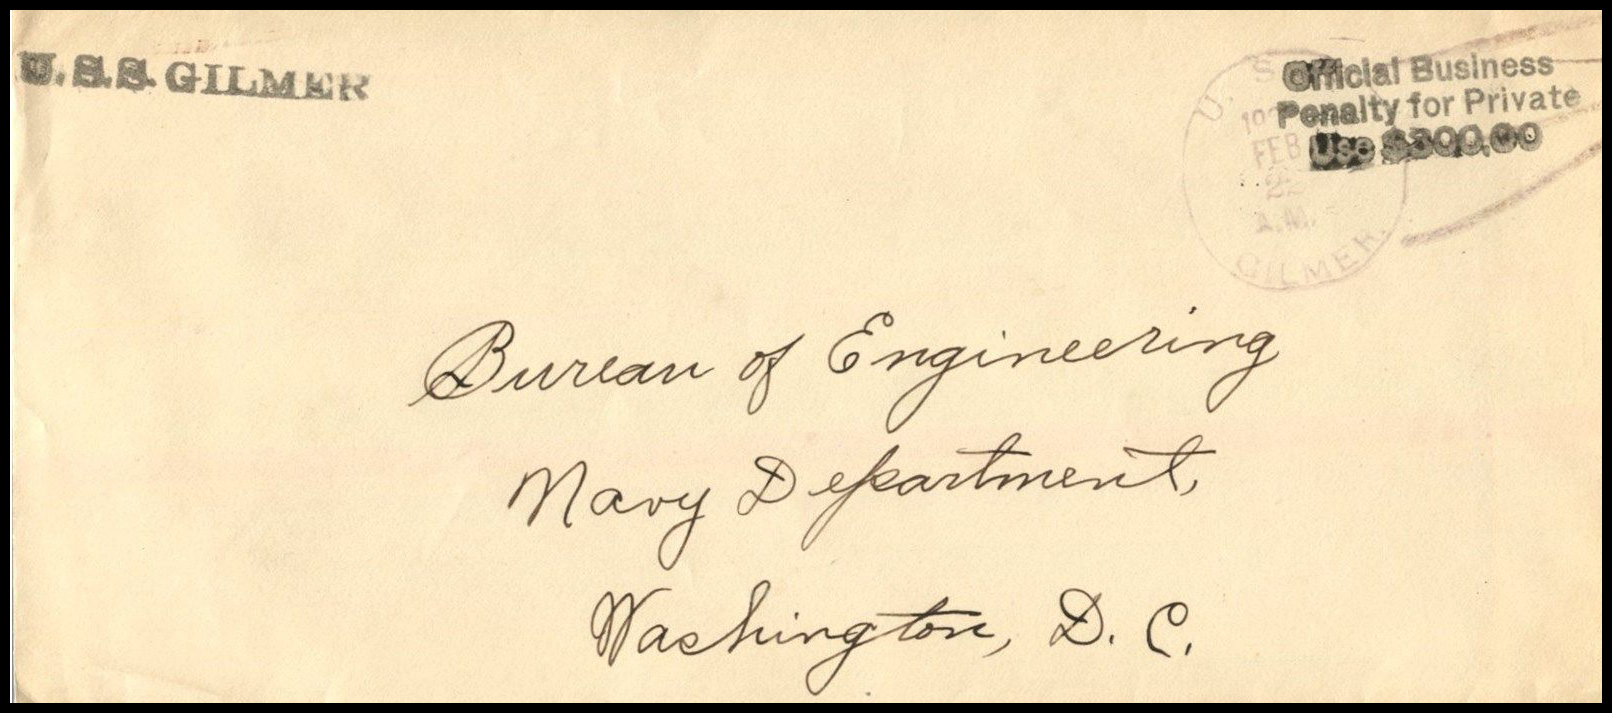 U.S.S. GILMER
Official Business
Penalty for Private
Use $300.00
U. S.
FEB
A.M.
GILMER.
Bureau of Engineering
Navy Department,
Washington, D. C.